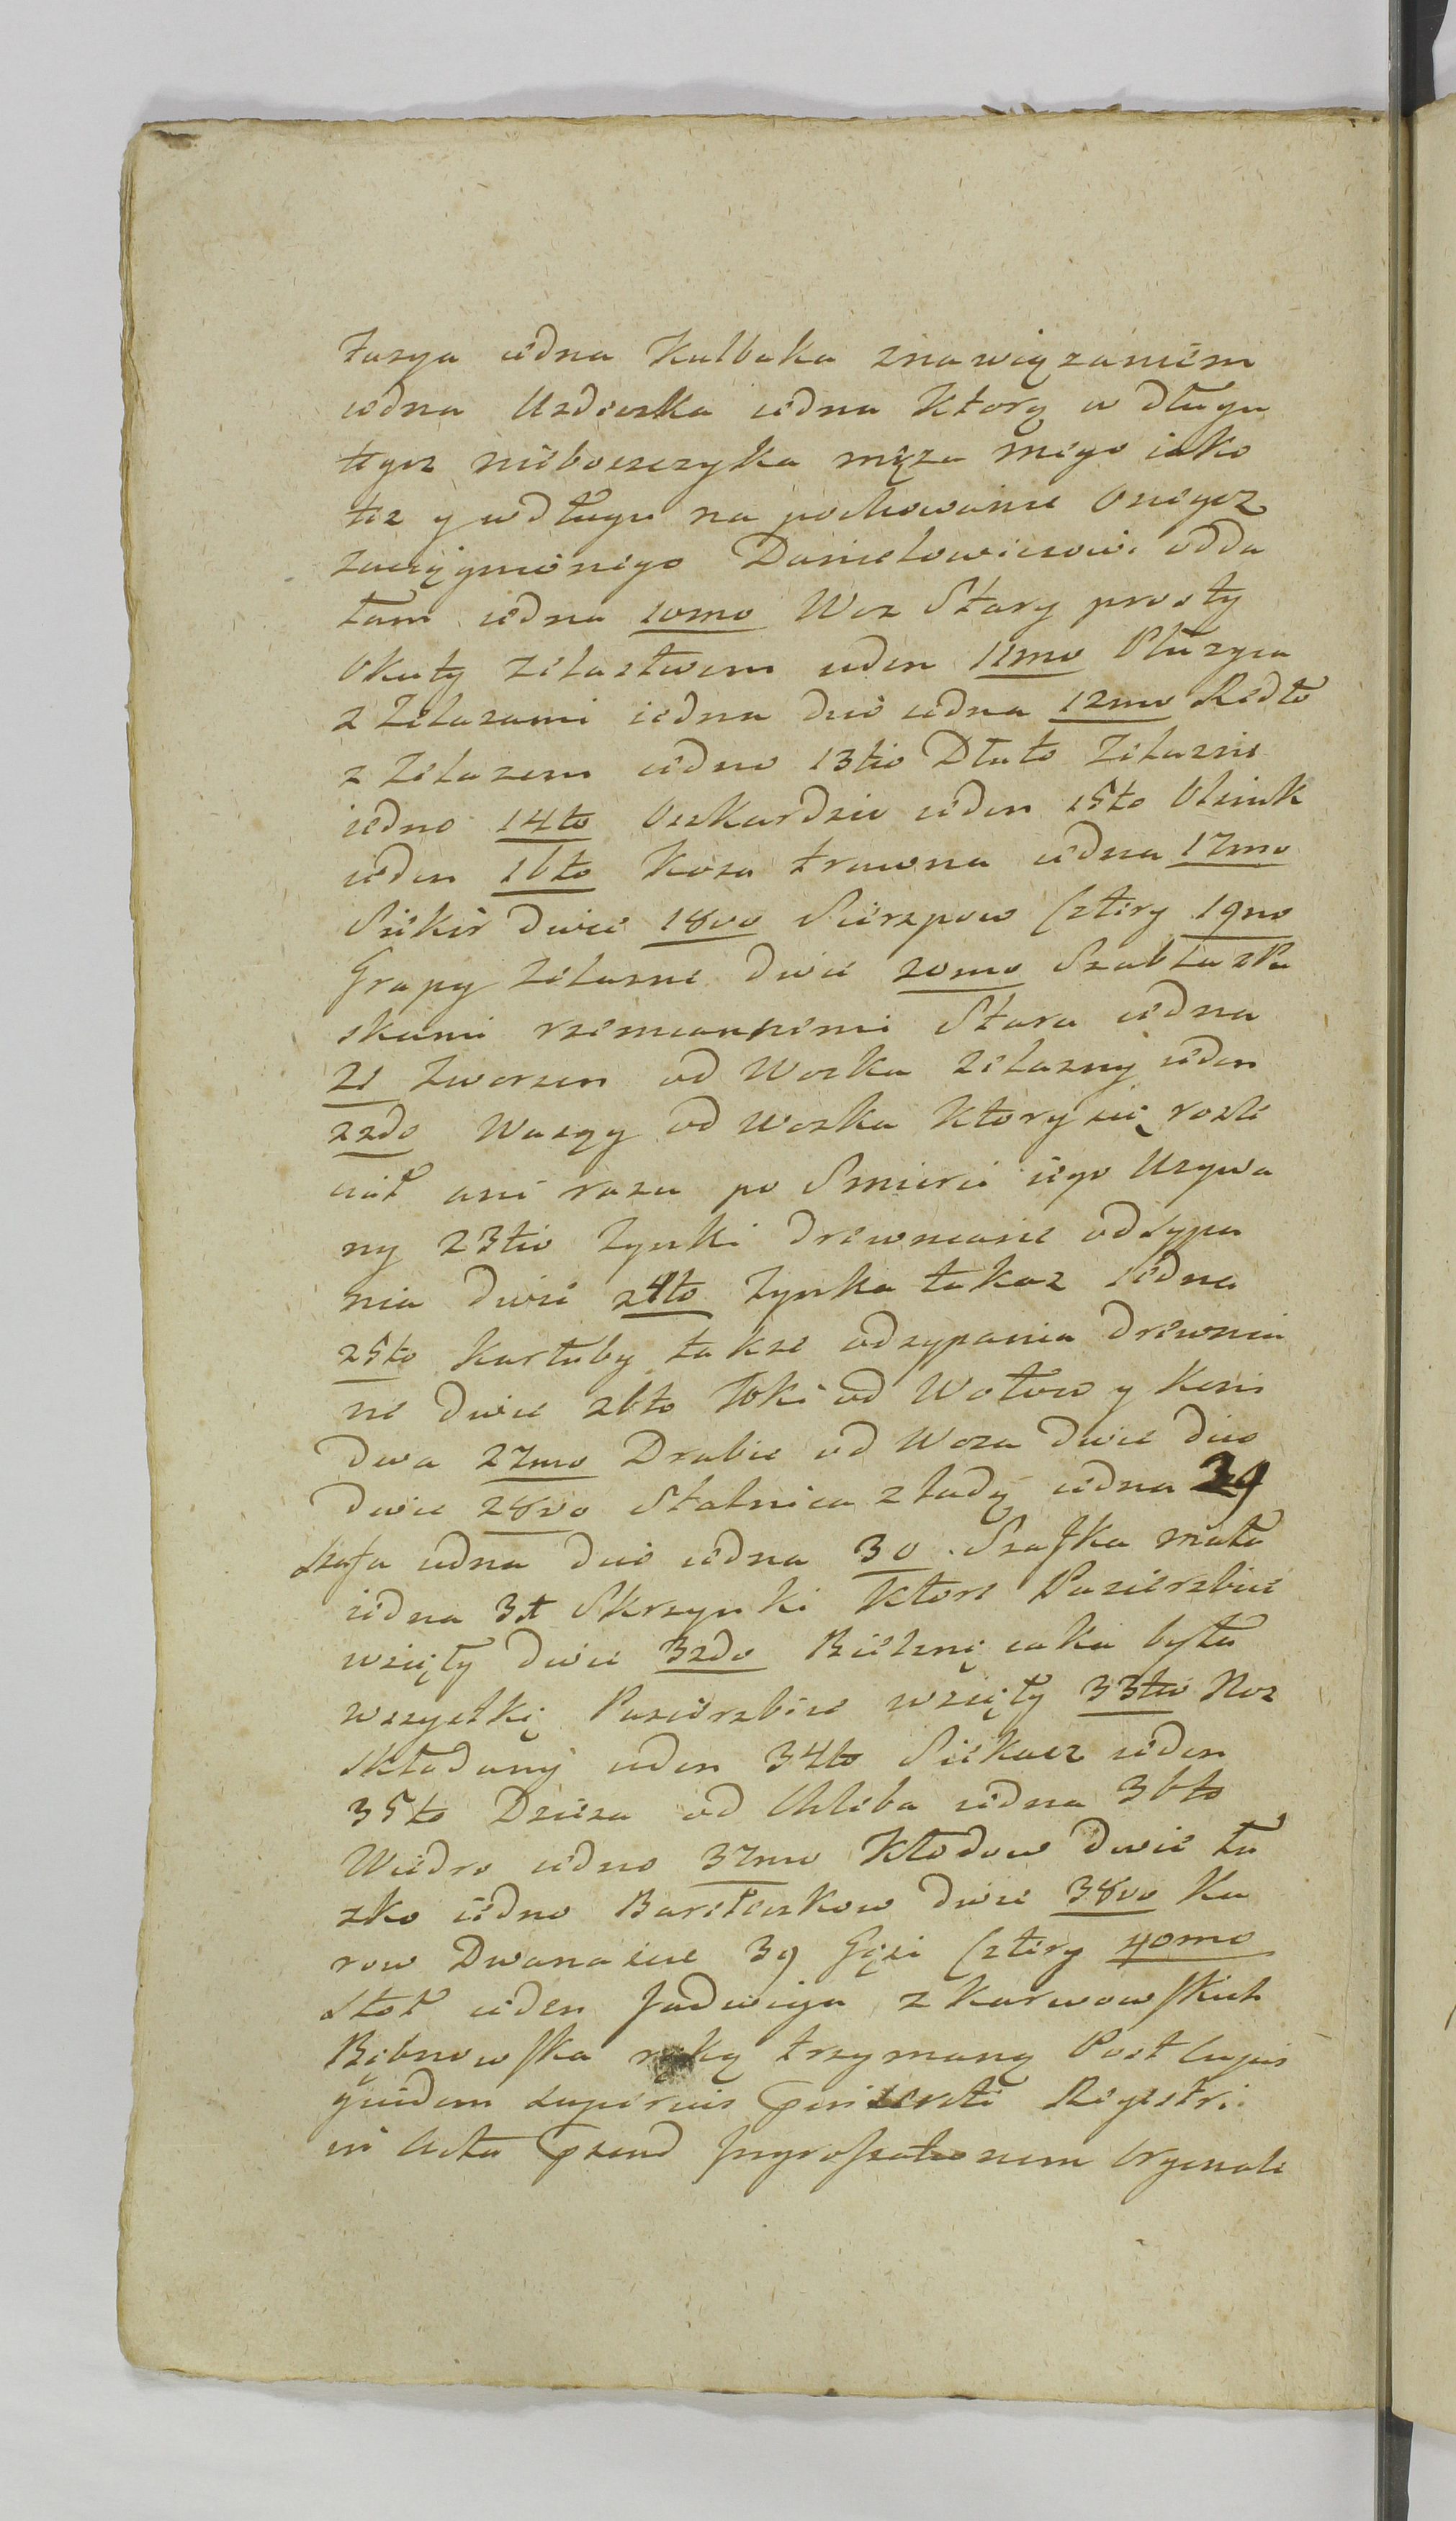 iedna Kulbaka znawiązaniem
iedna Uzdeczka iedna Ktorą w długu
tegoz nieboszczyka męza mego iako
tez y w długu na pochowanie Onegoz
zaciągnionego Danielowiczowi odda
łam iedna 10mo Woz Stary prosty
Okuty zelaztwem ieden 11mo Płuzyca
z Zelazami iedna duo iedna 12mo Redło
z Zelazem iedno 13tio Dłuto Zelazne
iedno 14to Oszkardzie ieden 15to Osinik
ieden 16to Kosa trawna iedna 17mo
Siekir dwie 18vo Sierzpow Cztery 19no
Grapy zelazne dwie 20mo Szabla z Pa
skami rzemiennemi Stara iedna
21 Zworzen od Wozka zelazny ieden
22do Wasąg od Wozka Ktory się rozle
ciał ani razu po Smierci iego Uzywa
ny 23tio Zynki drewniane od sypa
nia dwie 24to Zynka takaz iedna
25to Kartuby takze od sypania drewnia
ne dwie 26to Toki od Wołow y Koni
dwa 27mo Drabie od Woza dwie duo
dwie 28vo Stolnica z ladą iedna 29
Szafa iedna duo iedna 30. Szafka mała
iedna 31 Skrzynki Ktore Pasierzbice
wzięły dwie 32do Bieliznę iaka była
wszystkę Pasierzbice wzięły 33tio Noz
składany ieden 34to Siekacz ieden
35to Dzieza od Chleba iedna 36to
Wiedro iedno 37mo Kłodow dwie Łu
zko iedno Barełeczkow dwie 38vo Ku
row Dwanascie 39 Gęsi Cztery 40mo
Stoł ieden Jadwiga z Karwowskich
Bębnowska ręką trzymaną Post Cujus
quidem superius inserti Regestri
in Acta Ingrossationem Orginale